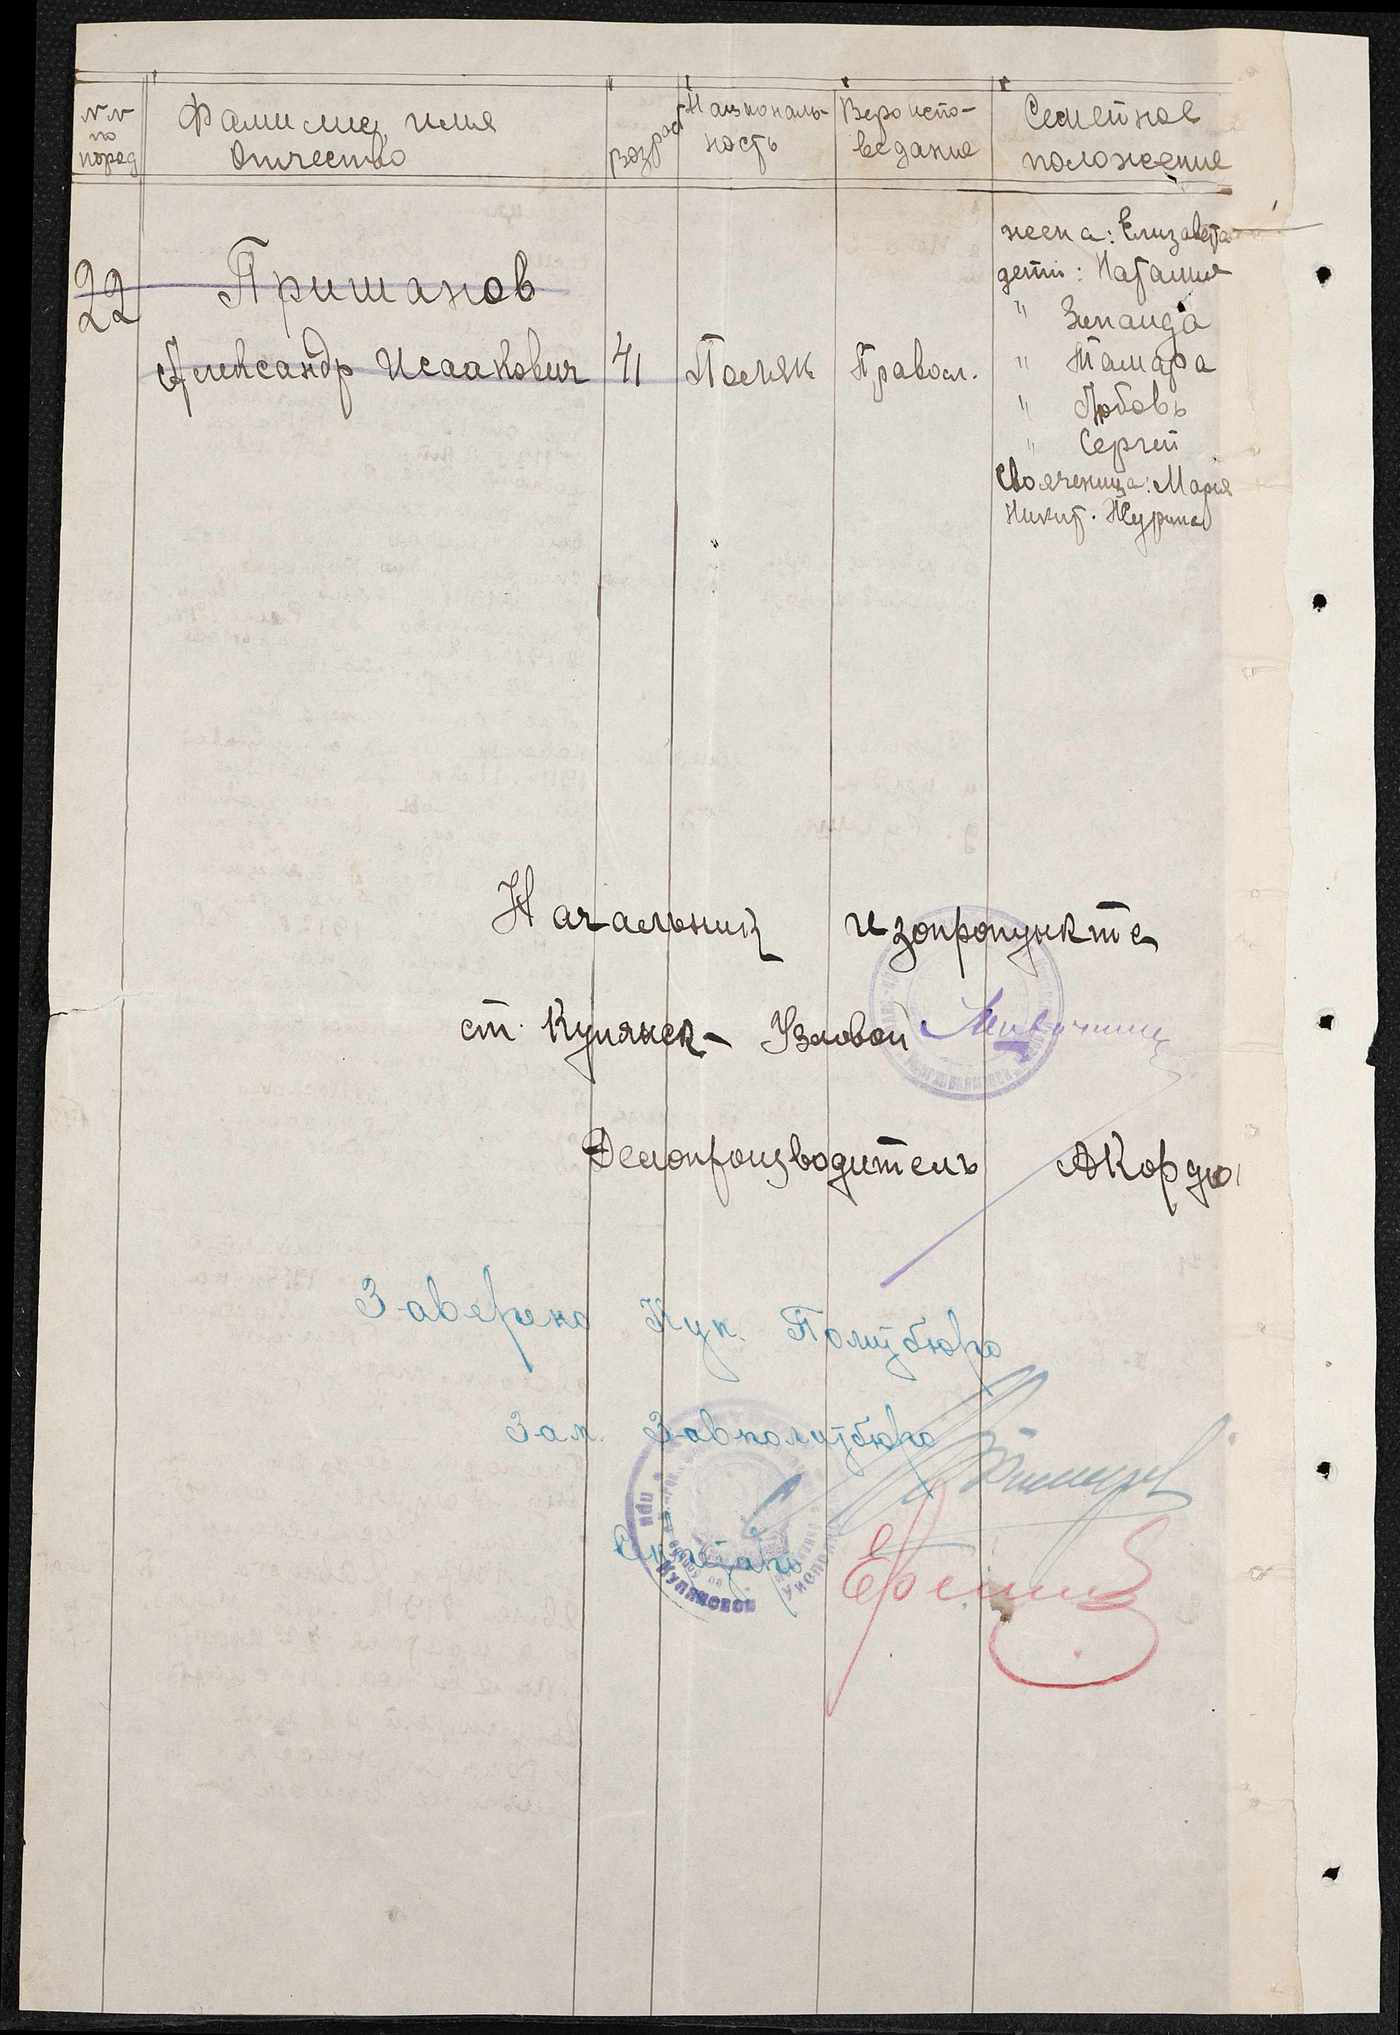 №№
по
поряд
Фамилия, имя
Отчество
возраст
Националь-
ность
Вероиспо-
ведание
Семейное
положение
22
Пришанов
Александр Исаакович
41
Поляк
Правосл.
жена: Елизавета
дети: Наталия
" Зинаида
" Тамара
" Любовь
" Сергей
Свояченица: Марія
Никит. Журина
Начальник изопропункта
ст. Купянск-Узловой
Делопроизводитель АКордю
Заверено Куп. Политбюро
Зам. Завполитбюро
Секретарь
Купянской